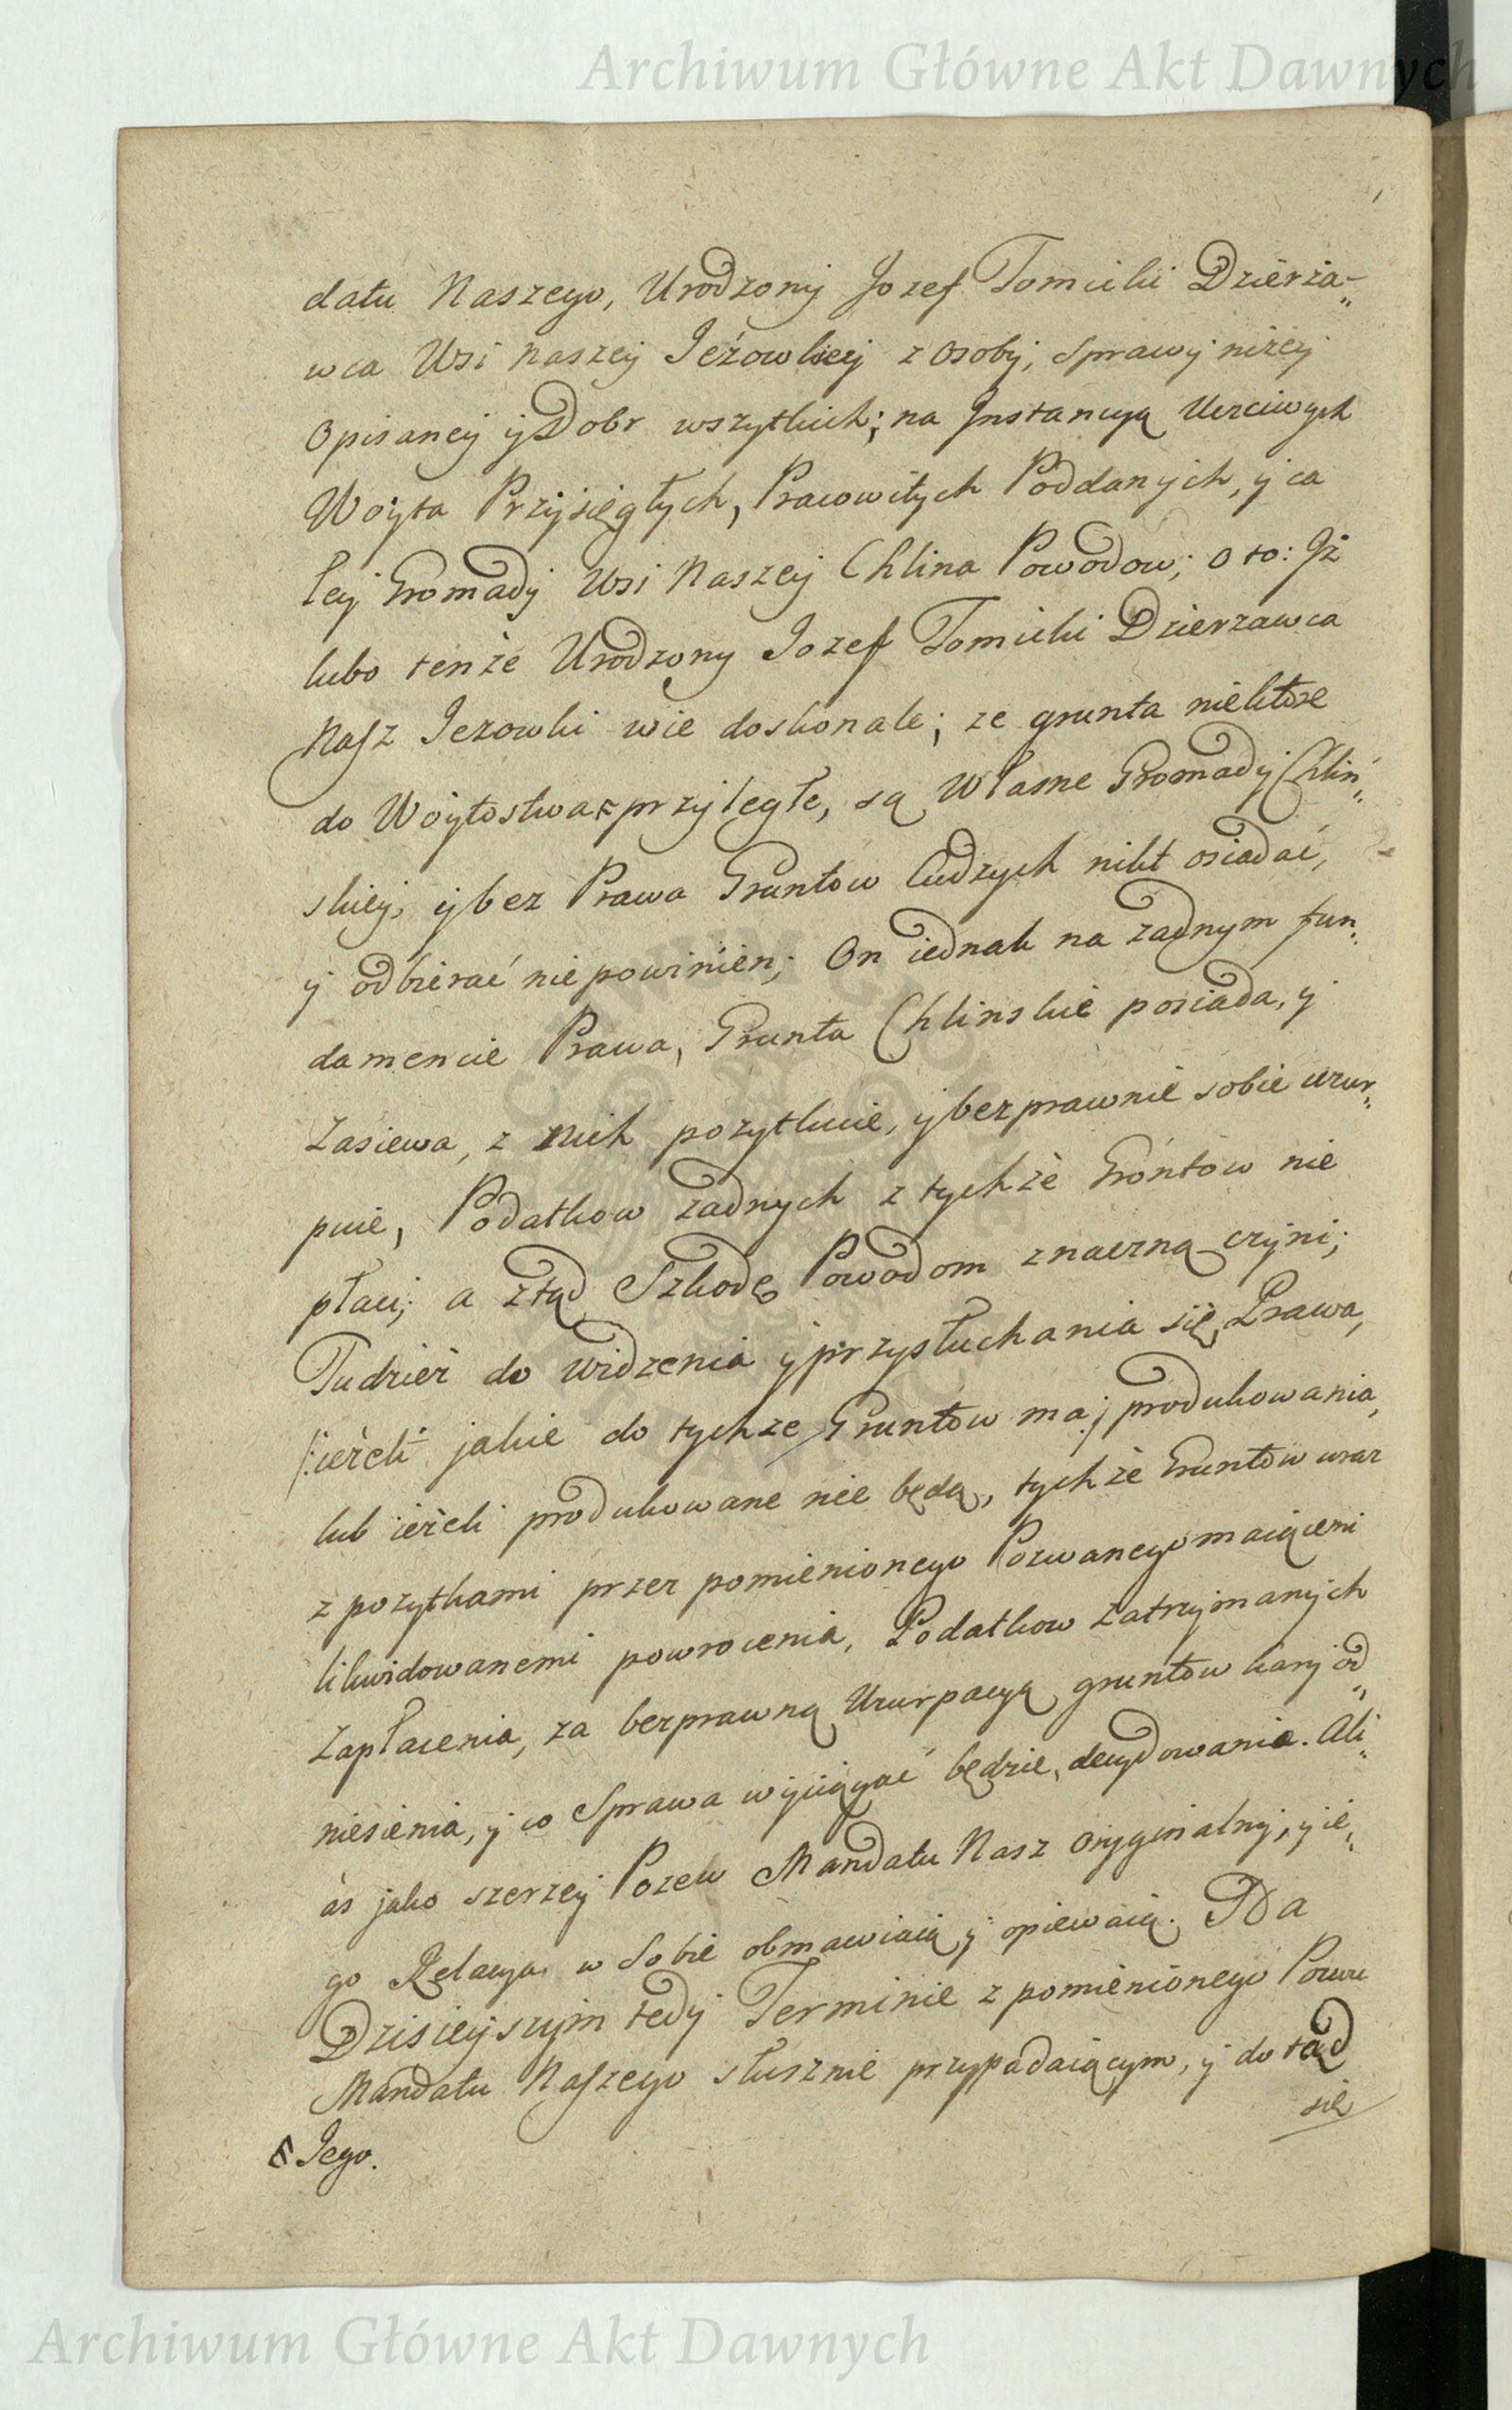 Archiwum Główne Akt Dawnych
datu Naszego, Urodzony Jozef Tomicki Dzierża-
wca Wsi Naszey Jeżowkiey z osoby, Sprawy niżey
Opisaney y Dobr wszytkich; na Jnstancyą Uczciwych
Woyta Przysięgłych, Pracowitych Poddanych, y ca
łey Gromady Wsi Naszey Chlina Powodow; o to: Jż
lubo tenże Urodzony Jozef Tomicki Dzierzawca
Nasz Jezowki wie doskonale; ze grunta niektóre
do Woytostwa ҕ przyległe, są Własne Gromady Chliń„
skiey, y bez Prawa Gruntow Cudzych nikt osiadać,
y odbierać nie powinien; On iednak na żadnym fun„
damencie Prawa, Grunta Chlinskie posiada, y
Zasiewa, z nich pozytkuie, y bezprawnie sobie uzur„
puie, Podatkow żadnych z tychże Grontow nie
płaci; a ztąd Szkodę Powodom znaczną czyni;
Tudzież do widzenia y przysłuchania się, Prawa,
/:ieżeli jakie do tychze Gruntow ma:/ produkowania,
lub ieżeli produkowane nie będą, tychże Gruntow wraz
z pozytkami przez pomienionego Pozwanego maiącemi
likwidowanemi powrocenia, Podatkow Zatrzymanych
Zapłacenia, za bezprawną Uzurpacyą gruntow kary od„
niesienia, y co Sprawa wyciągać będzie, decydowania. Ali„
as jako szerzey Pozew Mandatu Nasz oryginalny, y ie„
go Relacya w Sobie obmawiaią y opiewaią. Na
Dzisieyszym tedy Terminie z pomienionego Pozwu
Mandatu Naszego słusznie przypadaiącym, y do tąd
się
ҕ Jego.
Archiwum Główne Akt Dawnych